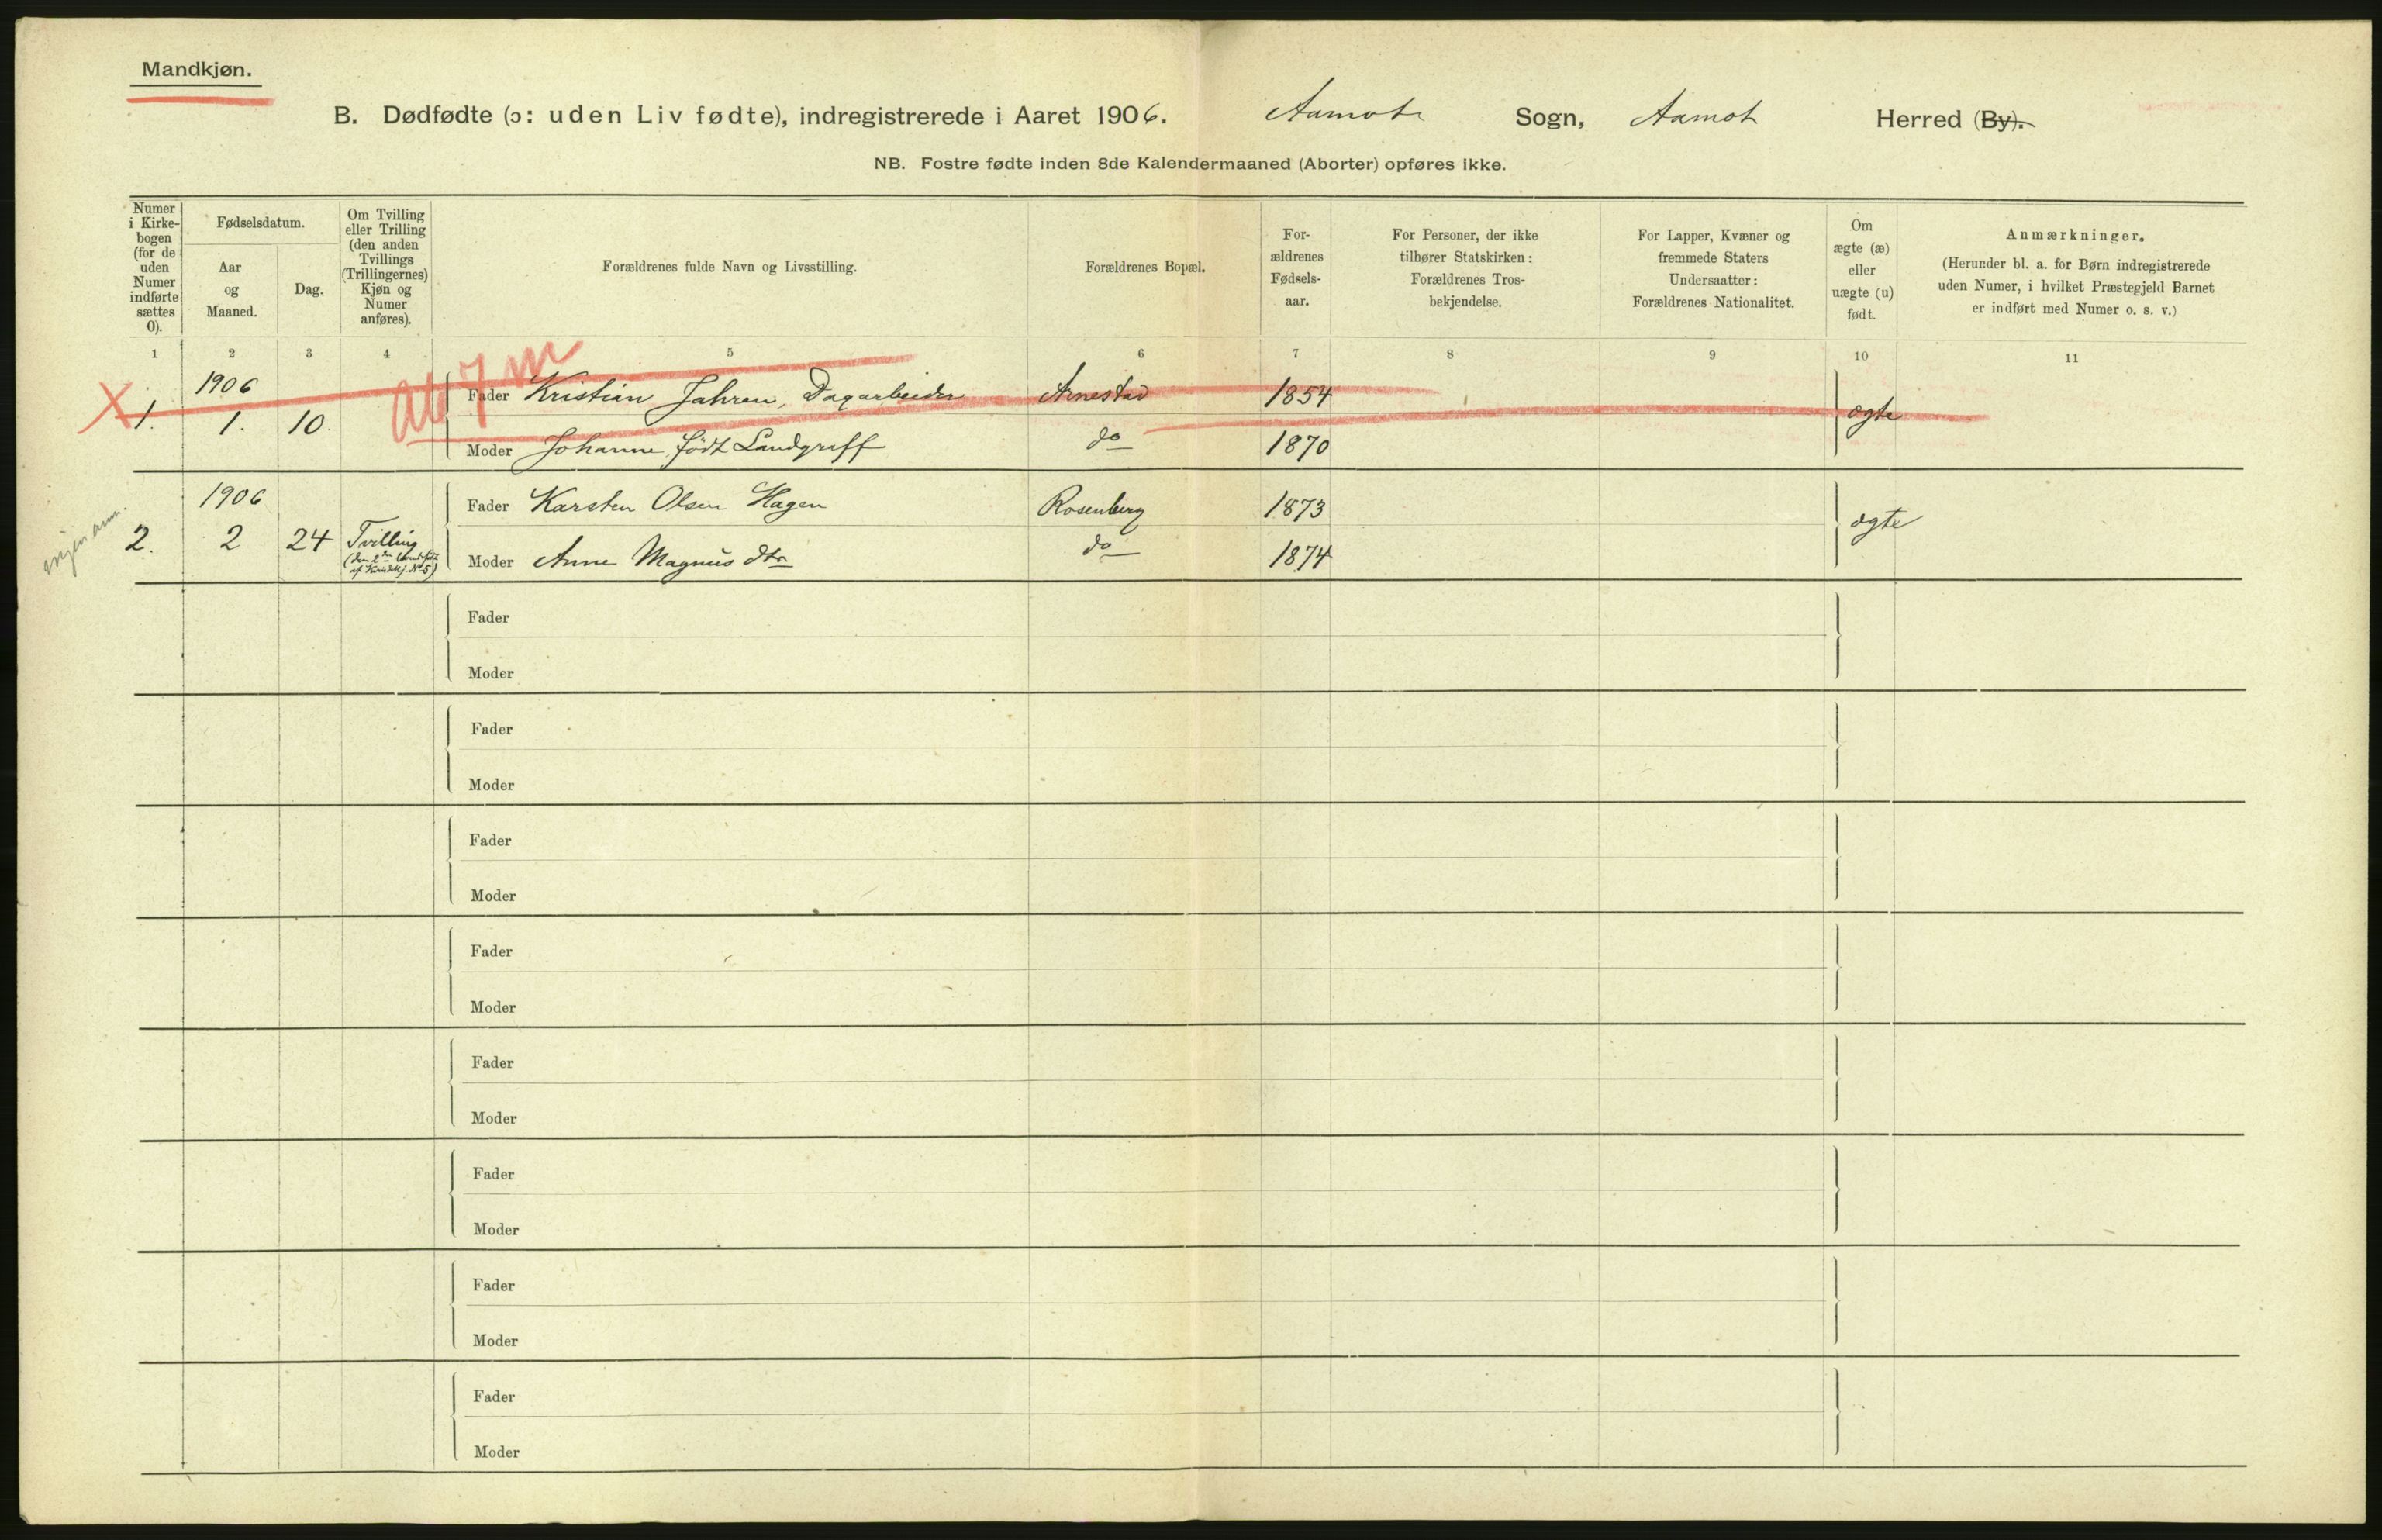 Mandkjøn.
B. Dødfødte (ɔ: uden Liv fødte), indregistrerede i Aaret 1906. Aamot Sogn, Aamot Herred (By).
NB. Fostre fødte inden 8de Kalendermaaned (Aborter) opføres ikke.
Numer i Kirke- bogen (for de uden Numer indførte sættes 0).
Fødselsdatum.
Aar og Maaned.
Dag.
Om Tvilling eller Trilling (den anden Tvillings (Trillingernes) Kjøn og Numer anføres).
Forældrenes fulde Navn og Livsstilling.
Forældrenes Bopæl.
For- ældrenes Fødsels- aar.
For Personer, der ikke tilhører Statskirken: Forældrenes Tros- bekjendelse.
For Lapper, Kvæner og fremmede Staters Undersaatter: Forældrenes Nationalitet.
Om ægte (æ) eller uægte (u) født.
Anmærkninger.
(Herunder bl. a. for Børn indregistrerede uden Numer, i hvilket Præstegjeld Barnet er indført med Numer o. s. v.)
1 2 3 4 5 6 7 8 9 10 11
X 1. 1906 1. 10.
Fader Kristian Jahren, Dagarbeider Arnestad 1854
ægte
Moder Johanne, født Landgraff do 1870
2. 1906 2 24 Tvilling
Fader Karsten Olsen Hagen Rosenberg 1873
ægte
Moder Anne Magnus dtr do 1874
Fader
Moder
Fader
Moder
Fader
Moder
Fader
Moder
Fader
Moder
Fader
Moder
Fader
Moder
Fader
Moder